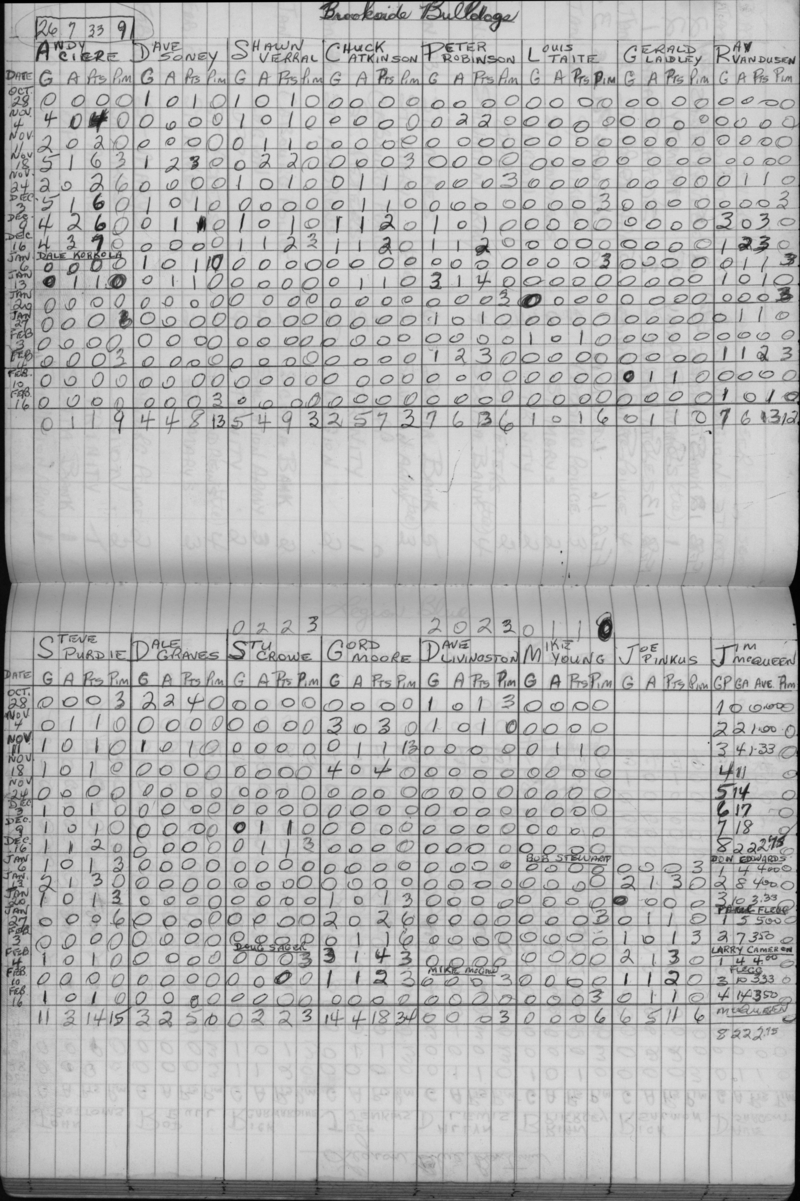 Brookside Bulldogs
26 7 33 9
ANDY CIERE DAVE SONEY SHAWN VERRAL CHUCK ATKINSON PETER ROBINSON LOUIS TAITE GERALD LAIDLEY RAY VANDUSEN
DATE G A Pts Pim G A Pts Pim G A Pts Pim G A Pts Pim G A Pts Pim G A Pts Pim G A Pts Pim G A Pts Pim
OCT. 28 0 0 0 0 1 0 1 0 1 0 1 0 0 0 0 0 0 0 0 0 0 0 0 0 0 0 0 0 0 0 0 0
NOV. 4 4 0 4 0 0 0 0 0 1 0 1 0 0 0 0 0 0 2 2 0 0 0 0 0 0 0 0 0 0 0 0 0
NOV. 11 2 0 2 0 0 0 0 0 0 1 1 0 0 0 0 0 0 0 0 0 0 0 0 0 0 0 0 0 0 0 0 0
NOV 18 5 1 6 3 1 2 3 0 0 2 2 0 0 0 0 3 0 0 0 0 0 0 0 0 0 0 0 0 0 0 0 0
NOV. 24 2 0 2 6 0 0 0 0 1 0 1 0 0 1 1 0 0 0 0 3 0 0 0 0 0 0 0 0 0 1 1 0
DEC 3 5 1 6 0 1 0 1 0 0 0 0 0 0 1 1 0 0 0 0 0 0 0 0 3 0 0 0 0 0 0 0 3
DEC. 9 4 2 6 0 0 1 1 0 1 0 1 0 1 1 2 0 1 0 1 0 0 0 0 0 0 0 0 0 3 0 3 0
DEC. 16 4 3 7 0 0 0 0 0 1 1 2 3 1 1 2 0 1 1 2 0 0 0 0 0 0 0 0 0 1 2 3 0
DALE KORKOLA
JAN 6 0 0 0 0 1 0 1 10 0 0 0 0 0 0 0 0 0 0 0 0 0 0 0 3 0 0 0 0 0 1 1 3
JAN 13 0 1 1 0 0 1 1 0 0 0 0 0 0 1 1 0 3 1 4 0 0 0 0 0 0 0 0 0 1 0 1 0
JAN 20 0 0 0 0 0 0 0 0 0 0 0 0 0 0 0 0 0 0 0 3 0 0 0 0 0 0 0 0 0 0 0 3
JAN 27 0 0 0 6 0 0 0 0 0 0 0 0 0 0 0 0 1 0 1 0 0 0 0 0 0 0 0 0 0 1 1 0
FEB 3 0 0 0 0 0 0 0 0 0 0 0 0 0 0 0 0 0 0 0 0 1 0 1 0 0 0 0 0 0 0 0 0
FEB 0 0 0 3 0 0 0 0 0 0 0 0 0 0 0 0 1 2 3 0 0 0 0 0 0 0 0 0 1 1 2 3
FEB. 10 0 0 0 0 0 0 0 0 0 0 0 0 0 0 0 0 0 0 0 0 0 0 0 0 0 1 1 0 0 0 0 0
FEB. 16 0 0 0 0 0 0 0 3 0 0 0 0 0 0 0 0 0 0 0 0 0 0 0 0 0 0 0 0 1 0 1 0
0 1 1 9 4 4 8 13 5 4 9 3 2 5 7 3 7 6 13 6 1 0 1 6 0 1 1 0 7 6 13 12
0 2 2 3 2 0 2 3 0 1 1 0
STEVE PURDIE DALE GRAVES STU CROWE GORD MOORE DAVE LIVINGSTON MIKE YOUNG JOE PINKUS JIM McQUEEN
DATE G A Pts Pim G A Pts Pim G A Pts Pim G A Pts Pim G A Pts Pim G A Pts Pim G A Pts Pim GP GA AVE Pim
OCT. 28 0 0 0 3 2 2 4 0 0 0 0 0 0 0 0 0 1 0 1 3 0 0 0 0 1 0 0.00 0
NOV 4 0 1 1 0 0 0 0 0 0 0 0 0 3 0 3 0 1 0 1 0 0 0 0 0 2 2 1.00 0
NOV 11 1 0 1 0 1 0 1 0 0 0 0 0 0 1 1 13 0 0 0 0 0 1 1 0 3 4 1.33 0
NOV. 18 1 0 1 0 0 0 0 0 0 0 0 0 4 0 4 0 0 0 0 0 0 0 0 0 4 11
NOV 24 0 0 0 0 0 0 0 0 0 0 0 0 0 0 0 0 0 0 0 0 0 0 0 0 5 14
DEC 3 1 0 1 0 0 0 0 0 0 0 0 0 0 0 0 0 0 0 0 0 0 0 0 0 6 17
DEC. 9 1 0 1 0 0 0 0 0 0 1 1 0 0 0 0 0 0 0 0 0 0 0 0 0 7 18
DEC. 16 1 1 2 0 0 0 0 0 0 1 1 3 0 0 0 0 0 0 0 0 0 0 0 0 8 22 2.75
BOB STEWART DON EDWARDS
JAN 6 1 0 1 3 0 0 0 0 0 0 0 0 0 0 0 0 0 0 0 0 0 0 0 0 0 0 0 3 1 4 4.00 0
JAN. 13 2 1 3 0 0 0 0 0 0 0 0 0 0 0 0 0 0 0 0 0 0 0 0 0 2 1 3 0 2 8 4.00 0
JAN 20 1 0 1 3 0 0 0 0 0 0 0 0 1 0 1 3 0 0 0 0 0 0 0 0 0 0 0 0 3 10 3.33
FLEGO
JAN 27 0 0 0 6 0 0 0 0 0 0 0 0 2 0 2 6 0 0 0 0 0 0 0 3 0 1 1 0 1 5 5.00 0
FEB. 3 0 0 0 0 0 0 0 0 0 0 0 0 0 1 1 6 0 0 0 0 0 0 0 0 1 0 1 3 2 7 3.50 0
DOUG SAGER LARRY CAMERON
FEB 4 1 0 1 0 0 0 0 0 0 0 0 3 3 1 4 3 0 0 0 0 0 0 0 0 2 1 3 0 1 4 4.00 0
MIKE FLEGO
FEB 10 0 0 0 0 0 0 0 0 0 0 0 0 1 1 2 3 0 0 0 3 0 0 0 0 1 1 2 0 3 10 3.33 0
FEB 16 1 0 1 0 0 0 0 0 0 0 0 0 0 0 0 0 0 0 0 0 0 0 0 3 0 1 1 0 4 14 3.50 0
11 3 14 15 3 2 5 0 0 2 2 3 14 4 18 34 0 0 0 3 0 0 0 6 6 5 11 6 McQUEEN
8 22 2.75